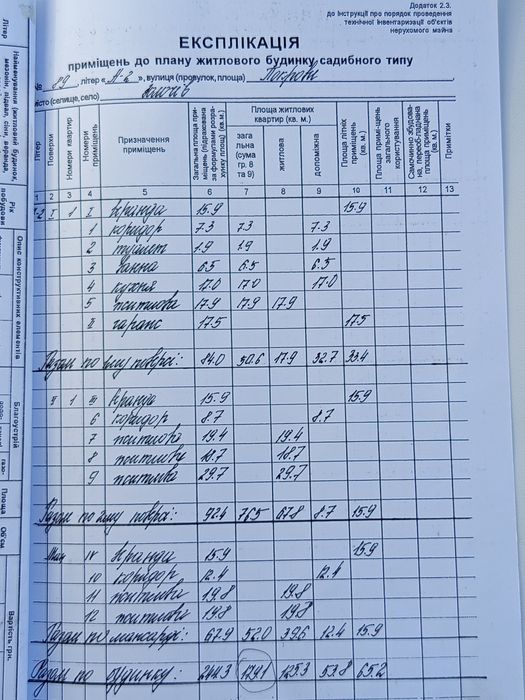 Додаток 2.3.
до Інструкції про порядок проведення
технічної інвентаризації об'єктів
нерухомого майна
ЕКСПЛІКАЦІЯ
приміщень до плану житлового будинку садибного типу
№ 89, літер «А-2», вулиця (провулок, площа)
місто (селище, село)
Літер Поверхи Номери квартир Номери приміщень Призначення приміщень Загальна площа приміщень (підрахована за формулами розрахунку площ) (кв. м.) Площа житлових квартир (кв. м.) загальна (сума гр. 8 та 9) житлова допоміжна Площа літніх приміщень (кв. м.) Площа приміщень загального користування Самочинно збудована, переобладнана площа приміщень (кв. м.) Примітки
1 2 3 4 5 6 7 8 9 10 11 12 13
А-2 I 1 I веранда 15.9 15.9
1 коридор 7.3 7.3 7.3
2 туалет 1.9 1.9 1.9
3 ванна 6.5 6.5 6.5
4 кухня 17.0 17.0 17.0
5 житлова 17.9 17.9 17.9
II гараж 17.5 17.5
Разом по 1му поверсі: 84.0 50.6 17.9 32.7 33.4
II 1 III веранда 15.9 15.9
6 коридор 8.7 8.7
7 житлова 19.4 19.4
8 житлова 18.7 18.7
9 житлова 29.7 29.7
Разом по 2му поверсі: 92.4 76.5 67.8 8.7 15.9
Ман IV веранда 15.9 15.9
10 коридор 12.4 12.4
11 житлова 19.8 19.8
12 житлова 19.8 19.8
Разом по мансарді: 67.9 52.0 39.6 12.4 15.9
Разом по будинку: 244.3 179.1 125.3 53.8 65.2
Літер
Найменування (житловий будинок,
мезонін, підвал, сіни, веранда,
Рік
побудови
Опис конструктивних елементів
Благоустрій
газо-
Площа
Об'єм
Вартість грн.